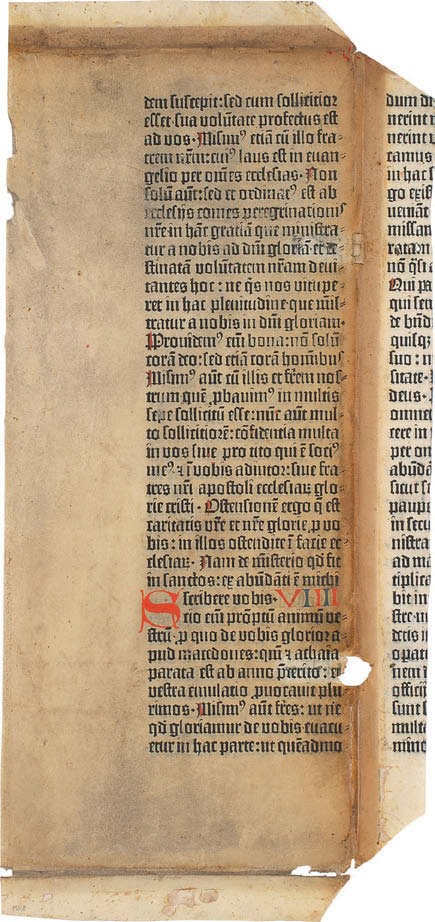 dem suscepit: sed cum sollicitior
esset sua volūtate profectus est
ad vos. Misim⁹ etiā cū illo fra-
trem nr̄m: cui⁹ laus est in euan-
gelio per om̄es ecclesias. Non
solū aūt: sed et ordinat⁹ est ab
ecclesijs comes peregrinationis
nr̄e in hāc gratiā que ministra-
tur a nobis ad dn̄i gloriā et de-
stinatā volūtatem nr̄am deui-
tantes hoc: ne q̄s nos vitupe-
ret in hac plenitudine que mīs-
tratur a nobis in dn̄i gloriam.
Prouidem⁹ em̄ bona: nō solū
corā deo: sed etiā corā homībus
Misim⁹ aūt cū illis et frēm nos-
trum quē ꝓbauim⁹ in multis
sepe sollicitū esse: nūc aūt mul-
to sollicitiorē: cōfidentia multa
in vos siue pro tito qui ē soci⁹
me⁹ ⁊ ī vobis adiutor: siue fra-
tres nr̄i apostoli ecclesiaꝝ glo-
rie cristi. Ostensionē ergo q̄ est
caritatis vr̄e et nr̄e glorie ꝓ vo-
bis: in illos ostendite ī faciē ec-
clesiaꝝ. Nam de mīsterio qd̄ fit
in sanctos: ex abūdāti ē michi
scribere vobis. VIIII
Scio em̄ prōptū animū ve-
strū ꝓ quo de vobis glorior a-
pud macedones: qm̄ ⁊ athaia
parata est ab anno p̄terito: et
vestra emulatio ꝓuocauit plu-
rimos. Misim⁹ aūt fr̄es: ut ne
qd̄ gloriamur de vobis euacu-
etur in hac parte: ut quēadmo
dum di
nerint m
nerint
camus
in hac s
go exist
ueniāt
missam
ratam
nō q̄si a
Qui pa
qui sem
de bn̄di
quisq;
suo: n
sitate.
deus.
omnem
cere in
per om
abūdā
sicut sc
paupe
in secu
nistra
ad ma
tiplica
bit in
stre: u
deris
opatu
nem
officij
sunt s
multa
mino